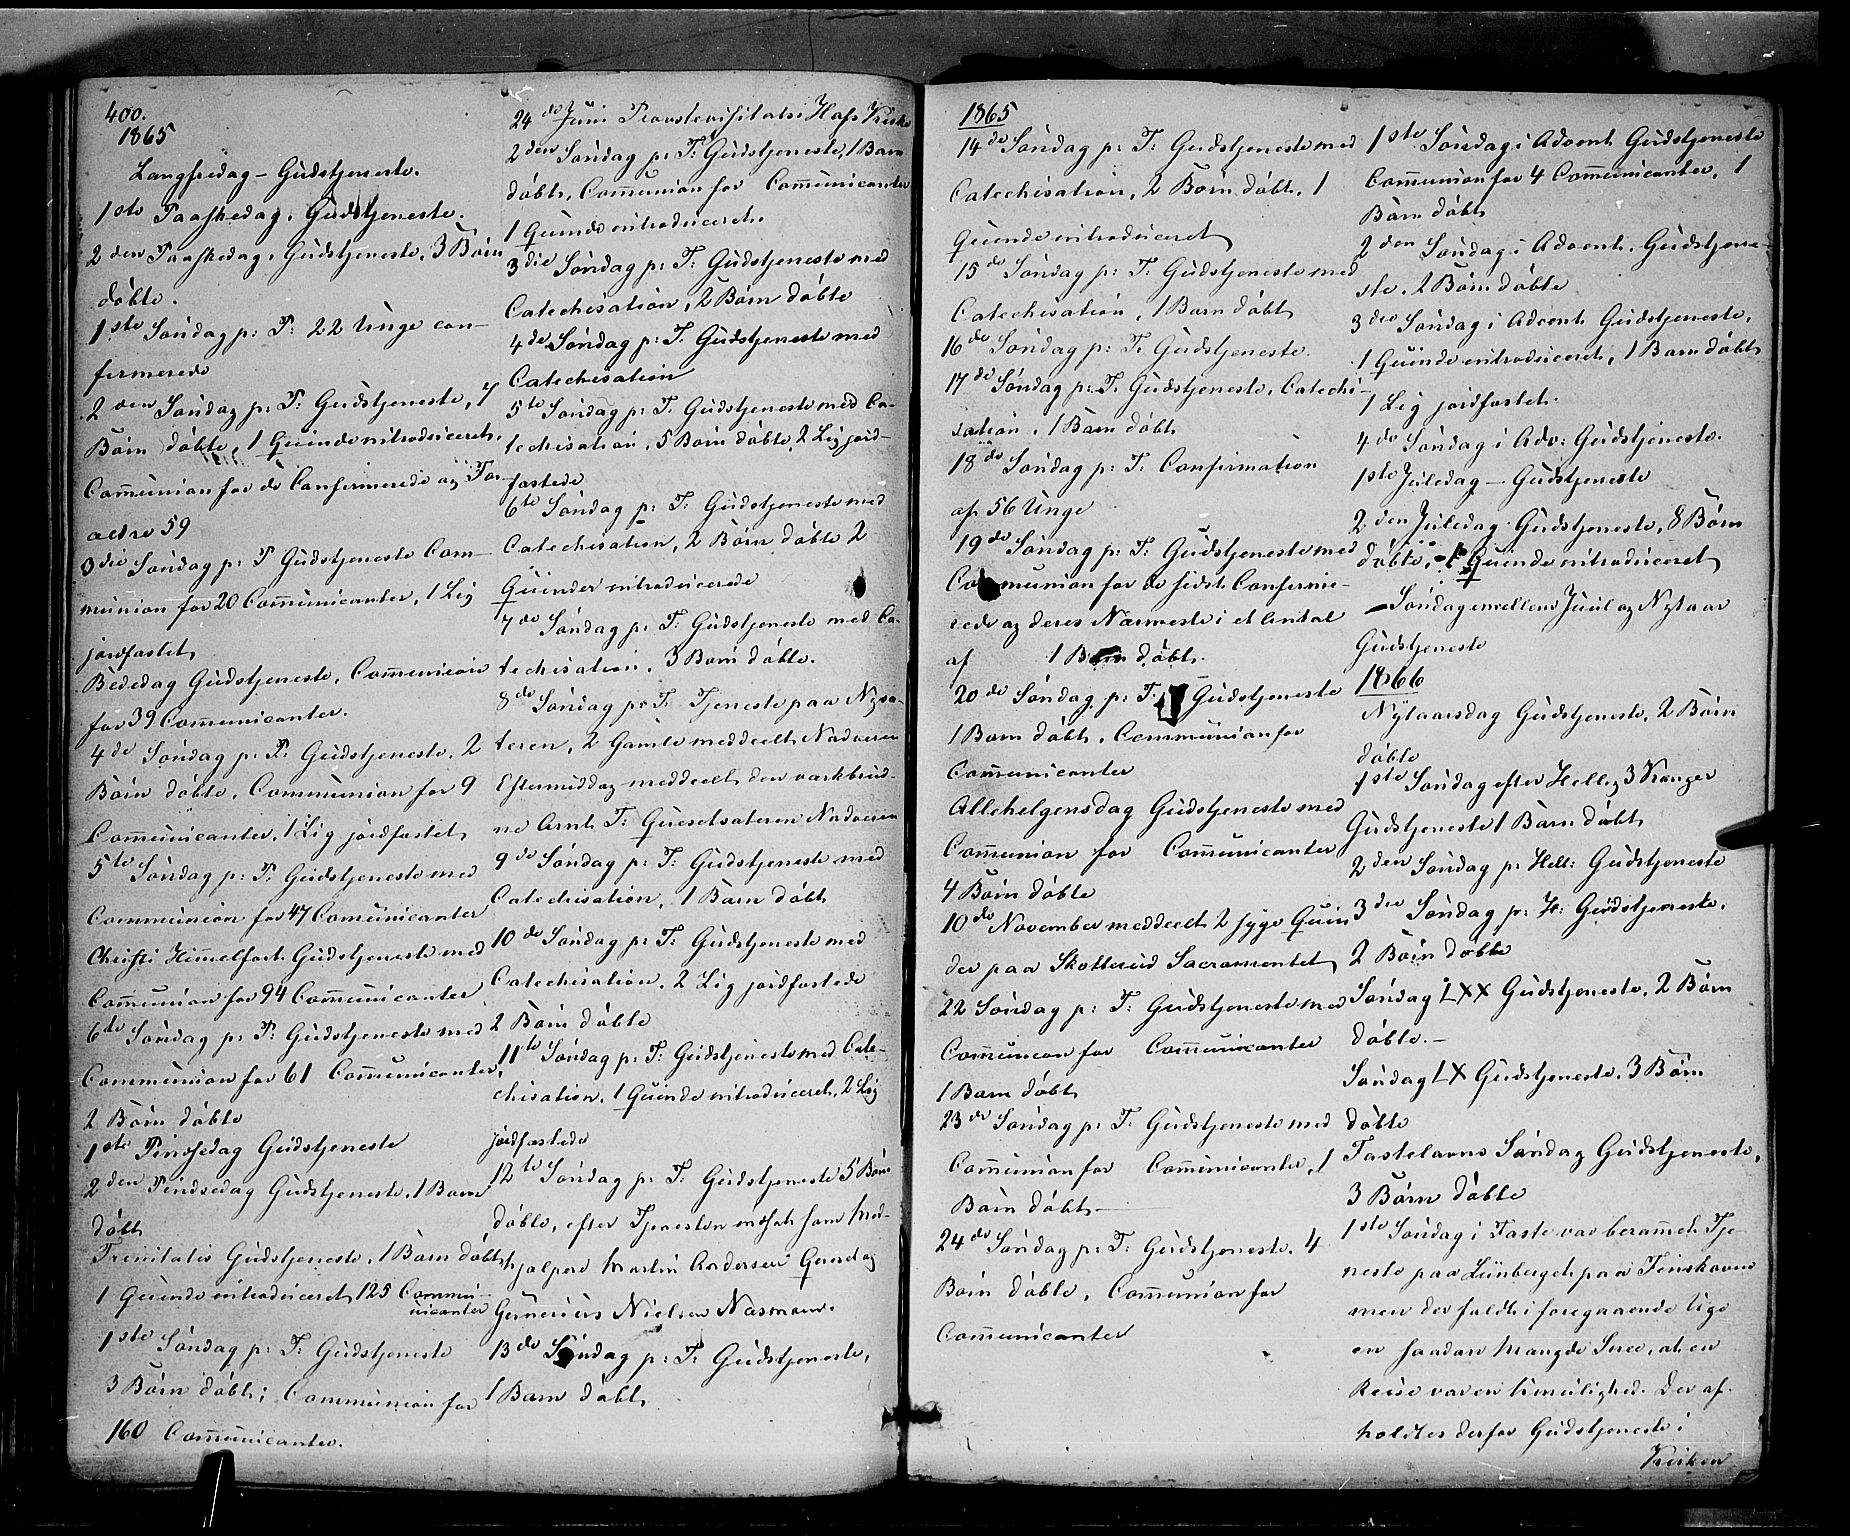 400.
1865
Langfredag – Gudstjeneste.
1ste Paaskedag, Gudstjeneste.
2den Paaskedag, Gudstjeneste, 3 Børn
døbte.
1ste Søndag p: P: 22 Unge con-
firmerede
2den Søndag p: P: Gudstjeneste, 7
Børn døbte, 1 Quinde introduceret,
Communion for de Confirmerede og For
ældre 59
3die Søndag p: P Gudstjeneste Com-
munion for 20 Communicanter, 1 Lig
jordfæstet
Bededag Gudstjeneste, Communion
for 39 Communicanter.
4de Søndag p: P: Gudstjeneste, 2
Børn døbte, Communion for 9
Communicanter, 1 Lig jordfæstet
5te Søndag p: P: Gudstjeneste med
Communion for 47 Comunicanter
Christi Himmelfart Gudstjeneste med
Communion for 94 Communicanter
6te Søndag p: P: Gudstjeneste med
Communion for 61 Communicanter,
2 Børn døbte
1ste Pinsedag Gudstjeneste
2den Pindsedag Gudstjeneste, 1 Barn
døbt
Trinitatis Gudstjeneste, 1 Barn døbt
1 Quinde introduceret 125 Commu-
nicanter
1ste Søndag p: T: Gudstjeneste
3 Børn døbt; Communion for
160 Communicanter.
24de Juni Provstevisitats i Hofs Kirke
2den Søndag p: T: Gudstjeneste, 1 Barn
døbt, Communion for Communicanter
1 Quinde introduceret.
3die Søndag p: T: Gudstjeneste med
Catechisation, 2 Børn døbte
4de Søndag p: T. Gudstjeneste med
Catechisation
5te Søndag p: T. Gudstjeneste med Ca-
techisation, 5 Børn døbte, 2 Lig jord-
fæstede
6te Søndag p: T. Gudstjeneste med
Catechisation, 2 Børn døbte 2
Quinder introducerede
7de Søndag p: T: Gudstjeneste med Ca-
techisation, 3 Børn døbte.
8de Søndag p: T. Tjeneste paa Nysæ-
teren, 2 Gamle meddeelt Nadveren
Eftermiddag meddeelt den værkbrud-
ne Arnt T: Nadveren
9de Søndag p: T: Gudstjeneste med
Catechisation, 1 Barn døbt
10de Søndag p: T: Gudstjeneste med
Catechisation, 2 Lig jordfæstede
2 Børn døbte
11te Søndag p: T: Gudstjeneste med Cate-
chisation, 1 Quinde introduceret, 2 Lig
jordfæstede
12te Søndag p: T: Gudstjeneste 5 Børn
døbte, efter Tjenesten indsat som Med-
hjælpere Martin Andersen og
Gunerius Nielsen Næsmoen.
13de Søndag p: T: Gudstjeneste,
1 Barn døbt
1865
14de Søndag p: T: Gudstjeneste med
Catechisation, 2 Børn døbt, 1
Quinde introduceret
15de Søndag p: T: Gudstjeneste med
Catechisation, 1 Barn døbt
16de Søndag p: T. Gudstjeneste.
17de Søndag p: T: Gudstjeneste, Catechi-
sation, 1 Barn døbt
18de Søndag p: T: Confirmation
af 56 Unge
19de Søndag p: T: Gudstjeneste med
Communion for de sidst Confirme-
rede og deres Nærmeste i et Antal
af 1 Barn døbt.
20de Søndag p: T. Gudstjeneste
1 Barn døbt, Communion for
Communicanter
Allehelgensdag Gudstjeneste med
Communion for Communicanter
4 Børn døbte
10de November meddeelt 2 syge Quin
der paa Skotterud Sacramentet
22 Søndag p: T: Gudstjeneste med
Communion for Communicanter
1 Barn døbt
23de Søndag p: T: Gudstjeneste med
Communion for Communicanter, 1
Barn døbt
24de Søndag p: T: Gudstjeneste. 4
Børn døbte, Communion for
Communicanter
1ste Søndag i Advent Gudstjeneste
Communion for 4 Communicanter, 1
Barn døbt
2den Søndag i Advent, Gudstjene-
ste. 2 Børn døbte
3die Søndag i Advent Gudstjeneste,
1 Quinde introduceret, 1 Barn døbt
1 Lig jordfæstet.
4de Søndag i Adv: Gudstjeneste.
1ste Juledag – Gudstjeneste
2den Juledag Gudstjeneste, 8 Børn
døbte, 1 Quinde introduceret
Søndag mellem Juul og Nytaar
Gudstjeneste
1866
Nytaarsdag Gudstjeneste, 2 Børn
døbte
1ste Søndag efter Hellig 3 Konger
Gudstjeneste 1 Barn døbt
2den Søndag p: Hell: Gudstjeneste
3die Søndag p: H: Gudstjeneste.
2 Børn døbte
Søndag LXX Gudstjeneste, 2 Børn
døbte. –
Søndag LX Gudstjeneste. 3 Børn
døbte
Fastelavns Søndag Gudstjeneste,
3 Børn døbte
1ste Søndag i Faste var berammet Tje-
neste paa Lunberget paa Finskoven
men der faldt i foregaaende Uge
en saadan Mængde Snee, at en
Reise var en Umulighed. Der af-
holdtes derfor Gudstjeneste i
Kirken